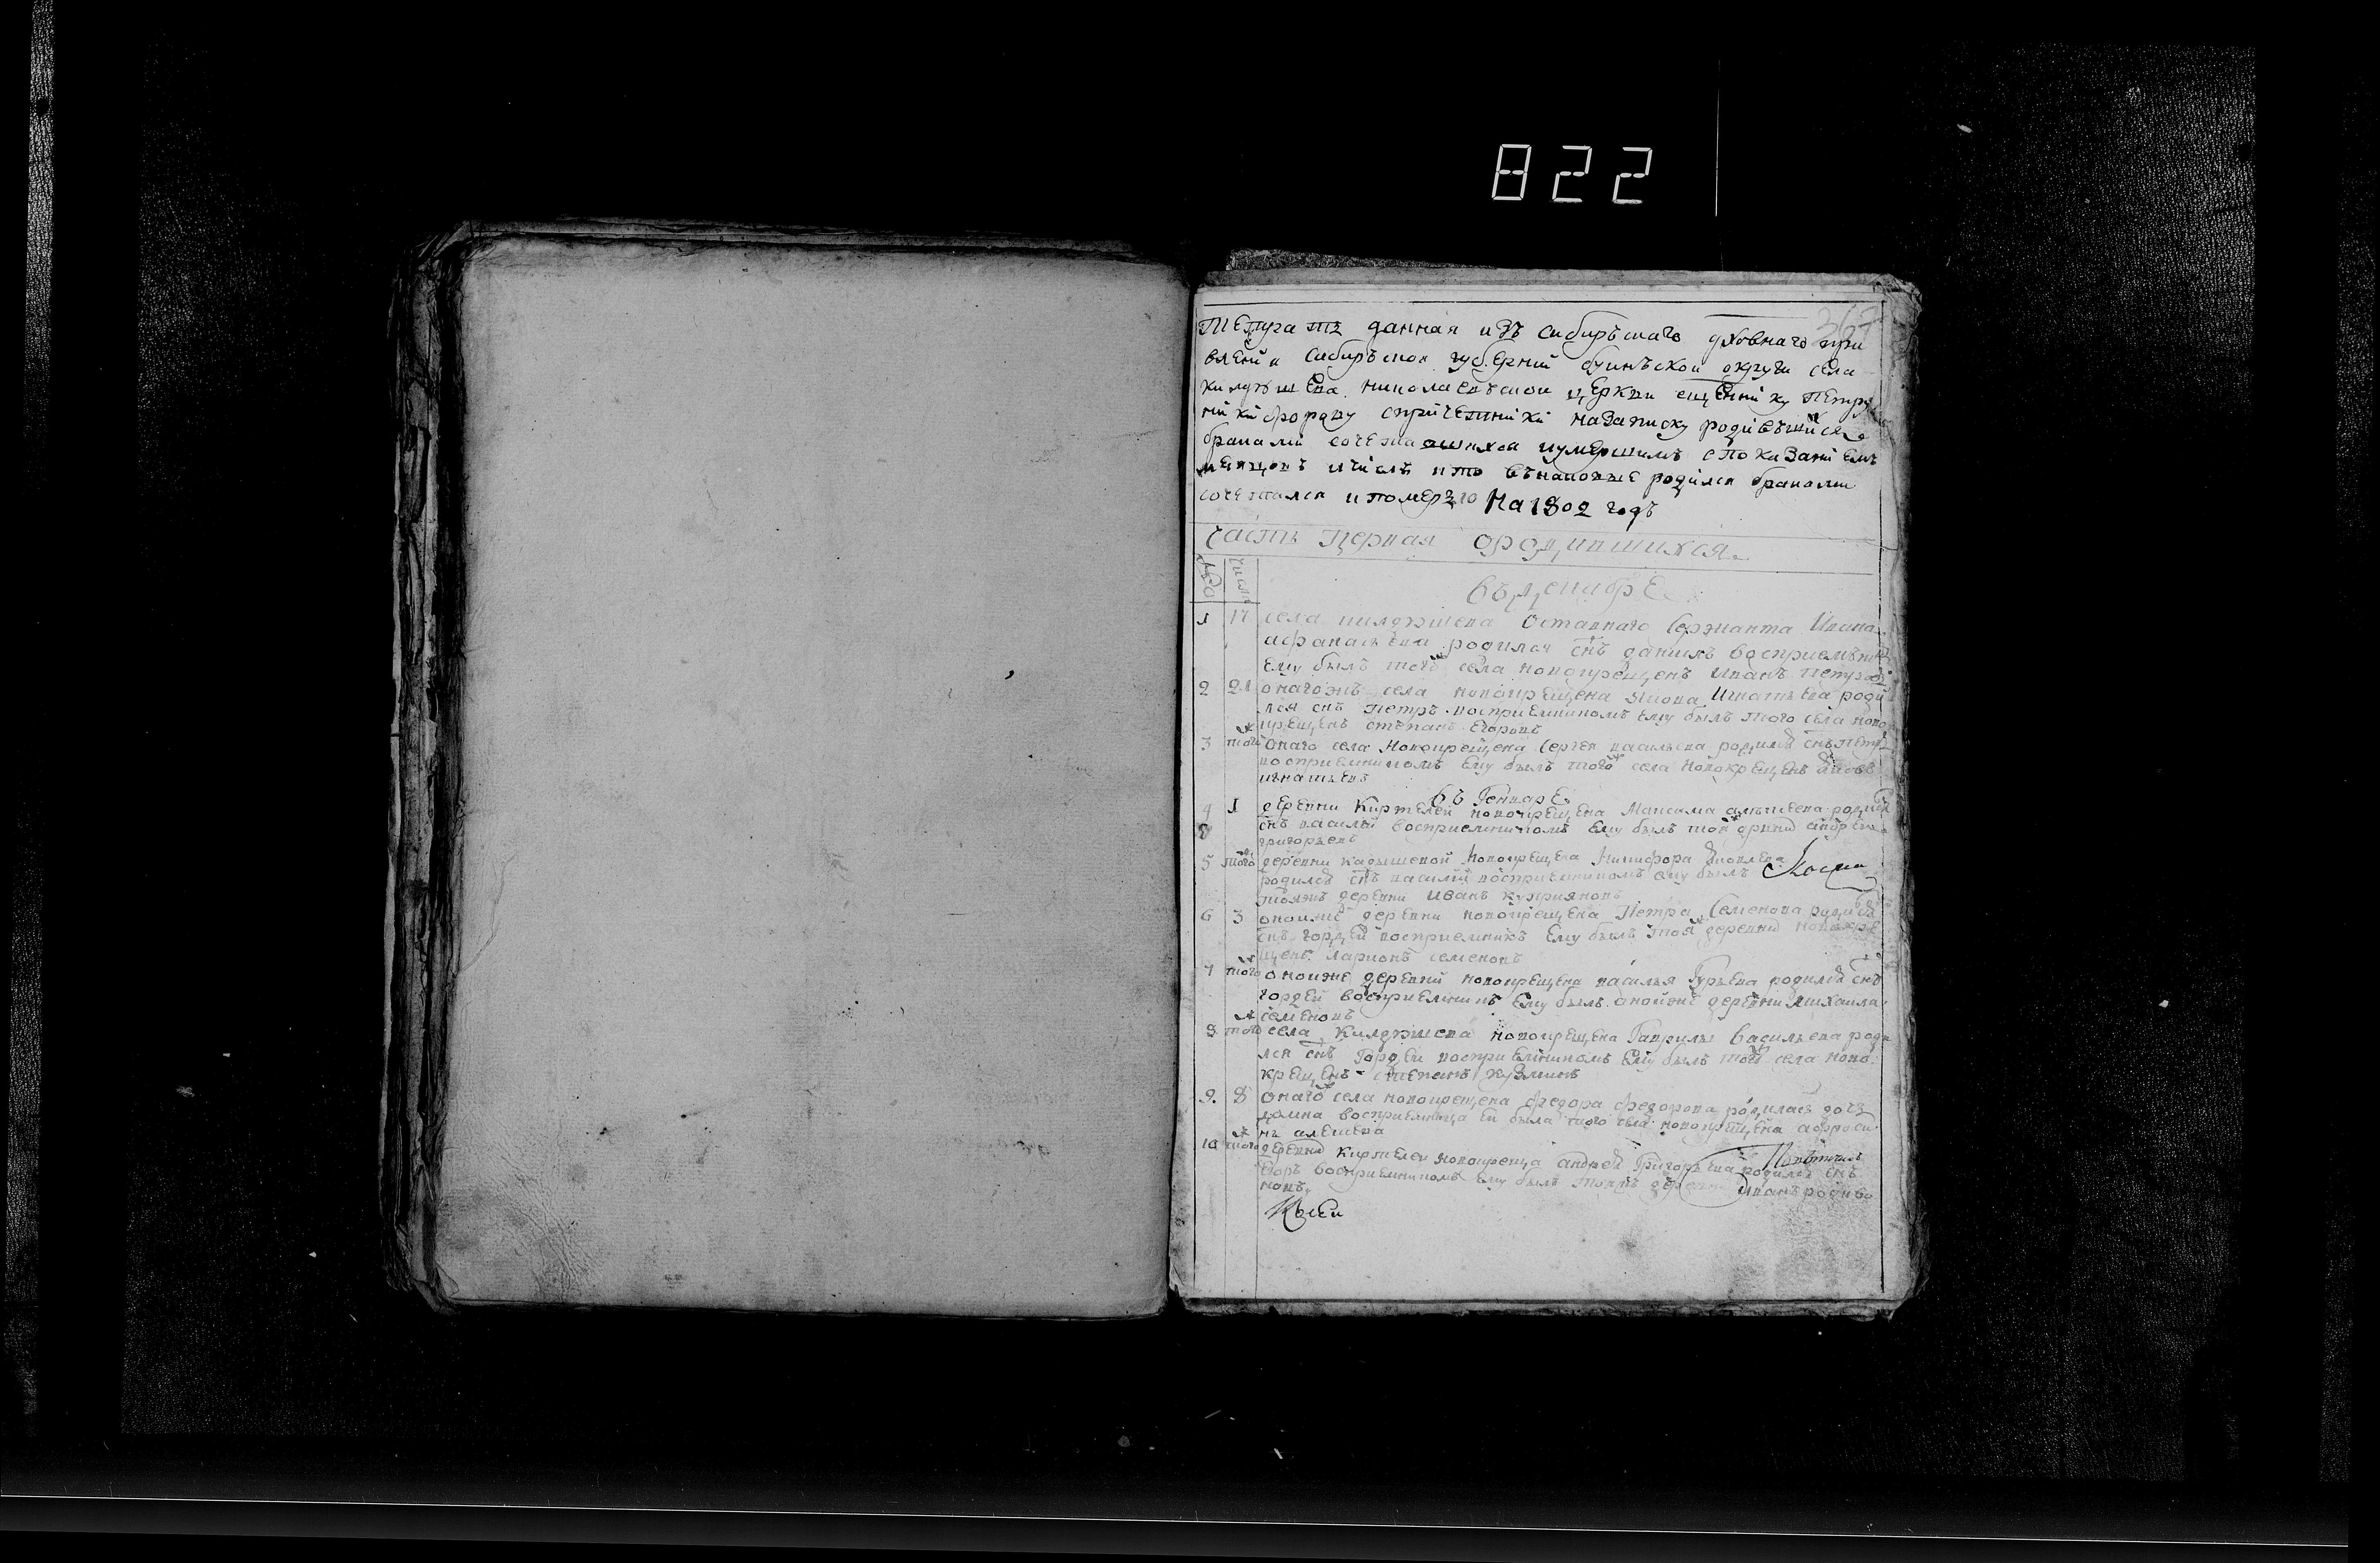 822
367
тетрать данная изъ сибирьскаго духовнаго пра
вления сибирьскои губернии буинъской округи села
килдюшева николаевъскои церкви сщеннику петру
с причетники на записку родившихся
браками сочетавшихся и умершимъ с показаниемъ
и чиселъ кто въ каковые родился браками
сочетался и померъ на 1802 годъ
часть первая о родившихся
число
въ декабре
1 17 села килдюшева отставнаго сержанта Ивана
афанасьева родился снъ данилъ восприемъник
ему былъ тогож села новокрещенъ иванъ петровъ
2 21 онагожъ села новокрещена якова игнатьева роди
лся снъ петръ восприемникомъ ему былъ того села ново
крещенъ степанъ егоровъ
3 тогож онаго села новокрещена сергея васильева родился снъ петръ
восприемникомъ ему былъ тогож села новокрещенъ яковъ
игнатьевъ
въ Генваре
4 1 деревни Киртелей новокрещена Максима родился
снъ василей восприемникомъ ему былъ тойж древни андреи
григорьевъ
5 тогож деревни кадышевой новокрещена Никифора яковлева
родился снъ василий восприемникомъ ему былъ
тояжъ деревни иванъ куприяновъ
6 3 оноижъ деревни новокрещена Петра Семенова родился
снъ гордей восприемникъ ему былъ тояж деревни новокре
щенъ ларионъ семеновъ
7 тогож оноиже деревни новокрещена василья Гурьева родился снъ
гордей восприемникъ ему былъ оноиже деревни михаила
семеновъ
8 тогож села Килдюшева новокрещена Гаврилы васильева роди
лся снъ Гордей восприемникомъ ему былъ тогож села ново
крещенъ степанъ кузминъ
9. 8 онагож села новокрещена федора федорова родилась дочь
домна восприемница ей была того села новокрещена афроси
нь алексева
10 тогож деревни Киртелеи новокреща андрея Григорьева родился снъ
егоръ восприемникомъ ему былъ тояжъ деревни иванъ родио
новъ